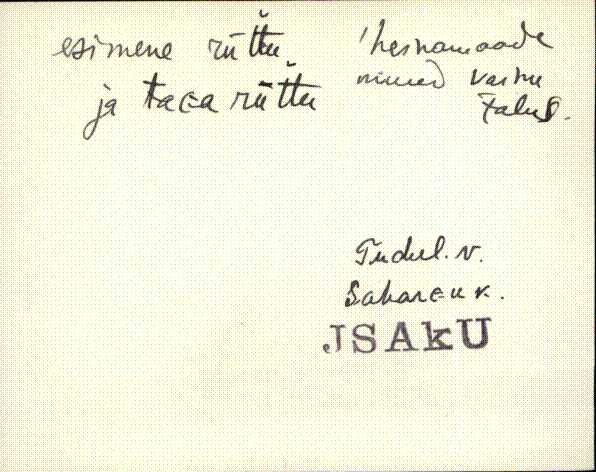 esimene rüttu
ja taga rüttu
'heinamaade
nimed vainu
talus.
Tudul. v.
Sahargu k.
JSAkU